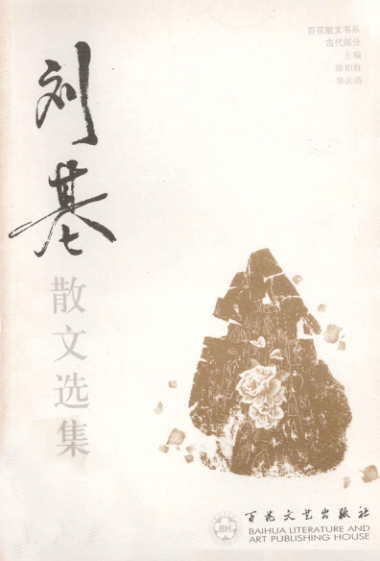 百花散文书系
古代部分
主编
徐柏容
郑法清
刘基
散文选集
百花文艺出版社
BH
BAIHUA LITERATURE AND
ART PUBLISHING HOUSE